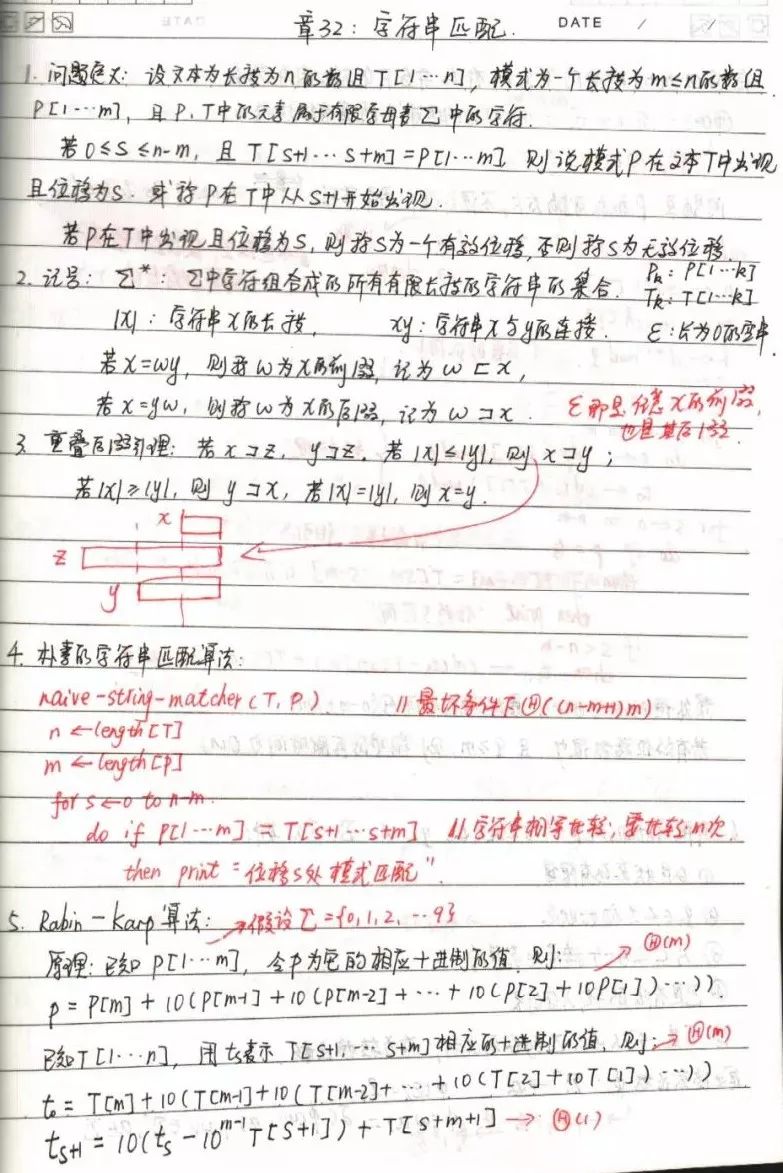 DATE
章32：字符串匹配.
DATE / /
1. 问题定义：设文本为长度为n的数组T[1…n]，模式为一个长度为m≤n的数组
P[1…m]，且P、T中的元素属于有限字母表Σ中的字符.
若0≤s≤n-m，且T[s+1…s+m]=P[1…m]，则说模式P在文本T中出现
且位移为s. 或称P在T中从s+1开始出现.
若P在T中出现且位移为s，则称s为一个有效位移，否则称s为无效位移.
2. 记号：Σ*：Σ中字符组合成的所有有限长度的字符串的集合. Pk：P[1…k]
Tk：T[1…k]
|x|：字符串x的长度， xy：字符串x与y的连接. ε：长为0的空串.
若x=wy，则称w为x的前缀，记为w⊏x，
若x=yw，则称w为x的后缀，记为w⊐x. ε即是任意x的前缀，
也是其后缀.
3. 重叠后缀引理：若x⊐z，y⊐z，若|x|≤|y|，则x⊐y；
若|x|≥|y|，则y⊐x，若|x|=|y|，则x=y.
x
z
y
4. 朴素的字符串匹配算法：
naive-string-matcher(T, P) //最坏条件下Θ((n-m+1)m)
n←length[T]
m←length[P]
for s←0 to n-m
do if P[1…m] = T[s+1…s+m] //字符串相等比较；需比较m次.
then print "位移s处模式匹配".
5. Rabin-Karp算法：→假设Σ={0,1,2,…9}
原理：已知P[1…m]，令p为它的相应十进制的值，则：→Θ(m)
p = P[m] + 10(P[m-1] + 10(P[m-2] + … + 10(P[2] + 10P[1])…)).
已知T[1…n]，用ts表示T[s+1,…s+m]相应的十进制的值，则：→Θ(m)
t0 = T[m] + 10(T[m-1] + 10(T[m-2] + … + 10(T[2] + 10T[1])…))
ts+1 = 10(ts - 10^m-1 T[s+1]) + T[s+m+1] → Θ(1)